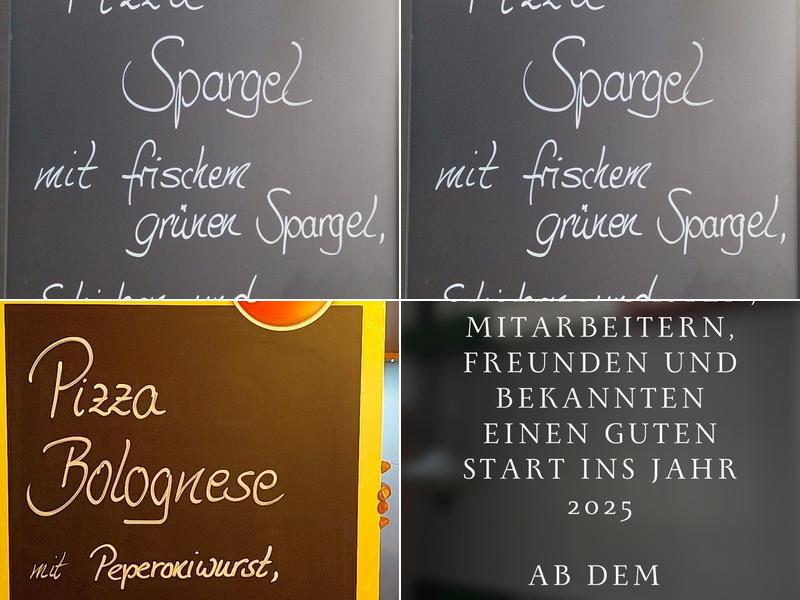 Pizza
Spargel
mit frischem
grünen Spargel,
Pizza
Spargel
mit frischem
grünen Spargel,
Pizza
Bolognese
mit Peperoniwurst,
MITARBEITERN,
FREUNDEN UND
BEKANNTEN
EINEN GUTEN
START INS JAHR
2025
AB DEM